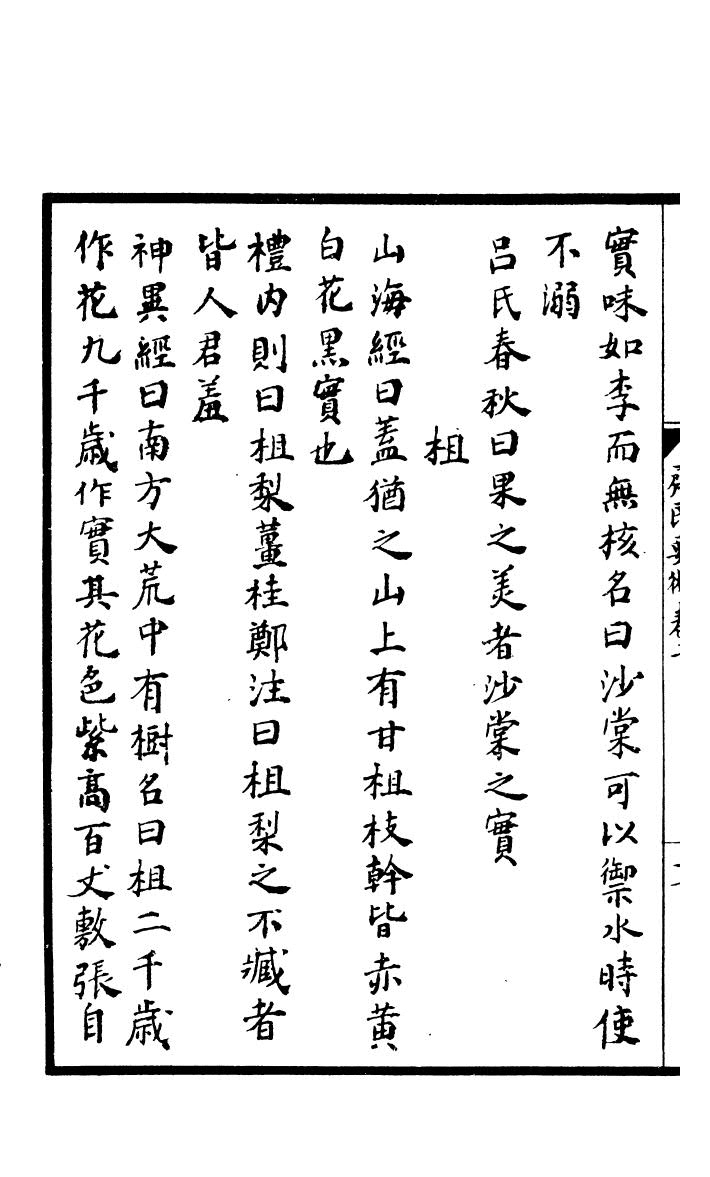 實味如李而無核名曰沙棠可以禦水時使
不溺
呂氏春秋曰果之美者沙棠之實
柤
山海經曰蓋猶之山上有甘柤枝幹皆赤黃
白花黑實也
禮內則曰柤梨薑桂鄭注曰柤梨之不臧者
皆人君羞
神異經曰南方大荒中有樹名曰柤二千歲
作花九千歲作實其花色紫高百丈敷張自